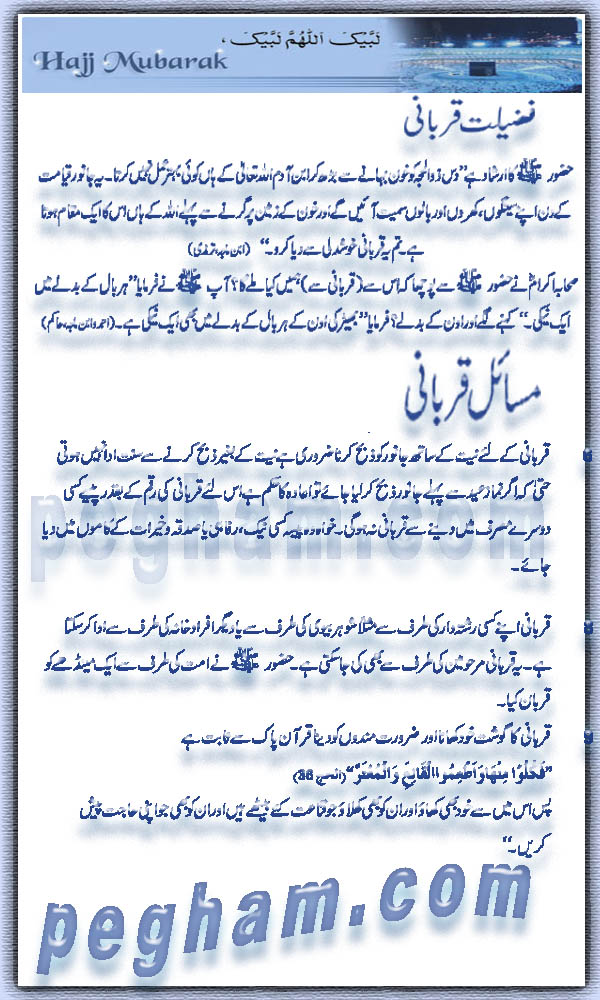 لَبَّيْكَ اَللّٰهُمَّ لَبَّيْكَ ،
Hajj Mubarak
فضیلت قربانی
حضور ﷺ کا ارشاد ہے ”دس ذوالحجہ کو خون بہانے سے بڑھ کر ابن آدم اللہ تعالیٰ کے ہاں کوئی بہتر عمل نہیں کرتا۔ یہ جانور قیامت
کے دن اپنے سینگوں، کھروں اور بالوں سمیت آئیں گے اور خون کے زمین پر گرنے سے پہلے اللہ کے ہاں اس کا ایک مقام ہوتا
ہے۔ تم یہ قربانی خوشدلی سے دیا کرو۔“ (ابن ماجہ، ترمذی)
صحابہ اکرامؓ نے حضور ﷺ سے پوچھا کہ اس سے (قربانی سے) ہمیں کیا ملے گا؟ آپ ﷺ نے فرمایا ”ہر بال کے بدلے میں
ایک نیکی۔“ کہنے لگے اور اون کے بدلے؟ فرمایا ”بھیڑ کی اون کے ہر بال کے بدلے میں بھی ایک نیکی ہے۔ (احمد وابن ماجہ، حاکم)
مسائل قربانی
قربانی کے لئے نیت کے ساتھ جانور کو ذبح کرنا ضروری ہے نیت کے بغیر ذبح کرنے سے سنت ادا نہیں ہوتی
حتیٰ کہ اگر نماز عید سے پہلے جانور ذبح کر لیا جائے تو اعادہ کا حکم ہے اس لئے قربانی کی رقم کے بقدر پیسے کسی
دوسرے مصرف میں دینے سے قربانی نہ ہوگی۔ خواہ وہ پیسہ کسی نیک، رفاہی یا صدقہ و خیرات کے کاموں میں دیا
جائے۔
pegham.com
قربانی اپنے کسی رشتہ دار کی طرف سے مثلاً شوہر بیوی کی طرف سے یا دیگر افراد خانہ کی طرف سے ادا کر سکتا
ہے۔ یہ قربانی مرحومین کی طرف سے بھی کی جا سکتی ہے۔ حضور ﷺ نے امت کی طرف سے ایک مینڈھے کو
قربان کیا۔
قربانی کا گوشت خود کھانا اور ضرورت مندوں کو دینا قرآن پاک سے ثابت ہے
”فَكُلُوْا مِنْهَا وَاَطْعِمُوا الْقَانِعَ وَالْمُعْتَرَّ“ (الحج 36)
پس اس میں سے خود بھی کھاؤ اور ان کو بھی کھلاؤ جو قناعت کے بیٹھے ہیں اور ان کو بھی جو اپنی حاجت پیش
کریں۔“
pegham.com